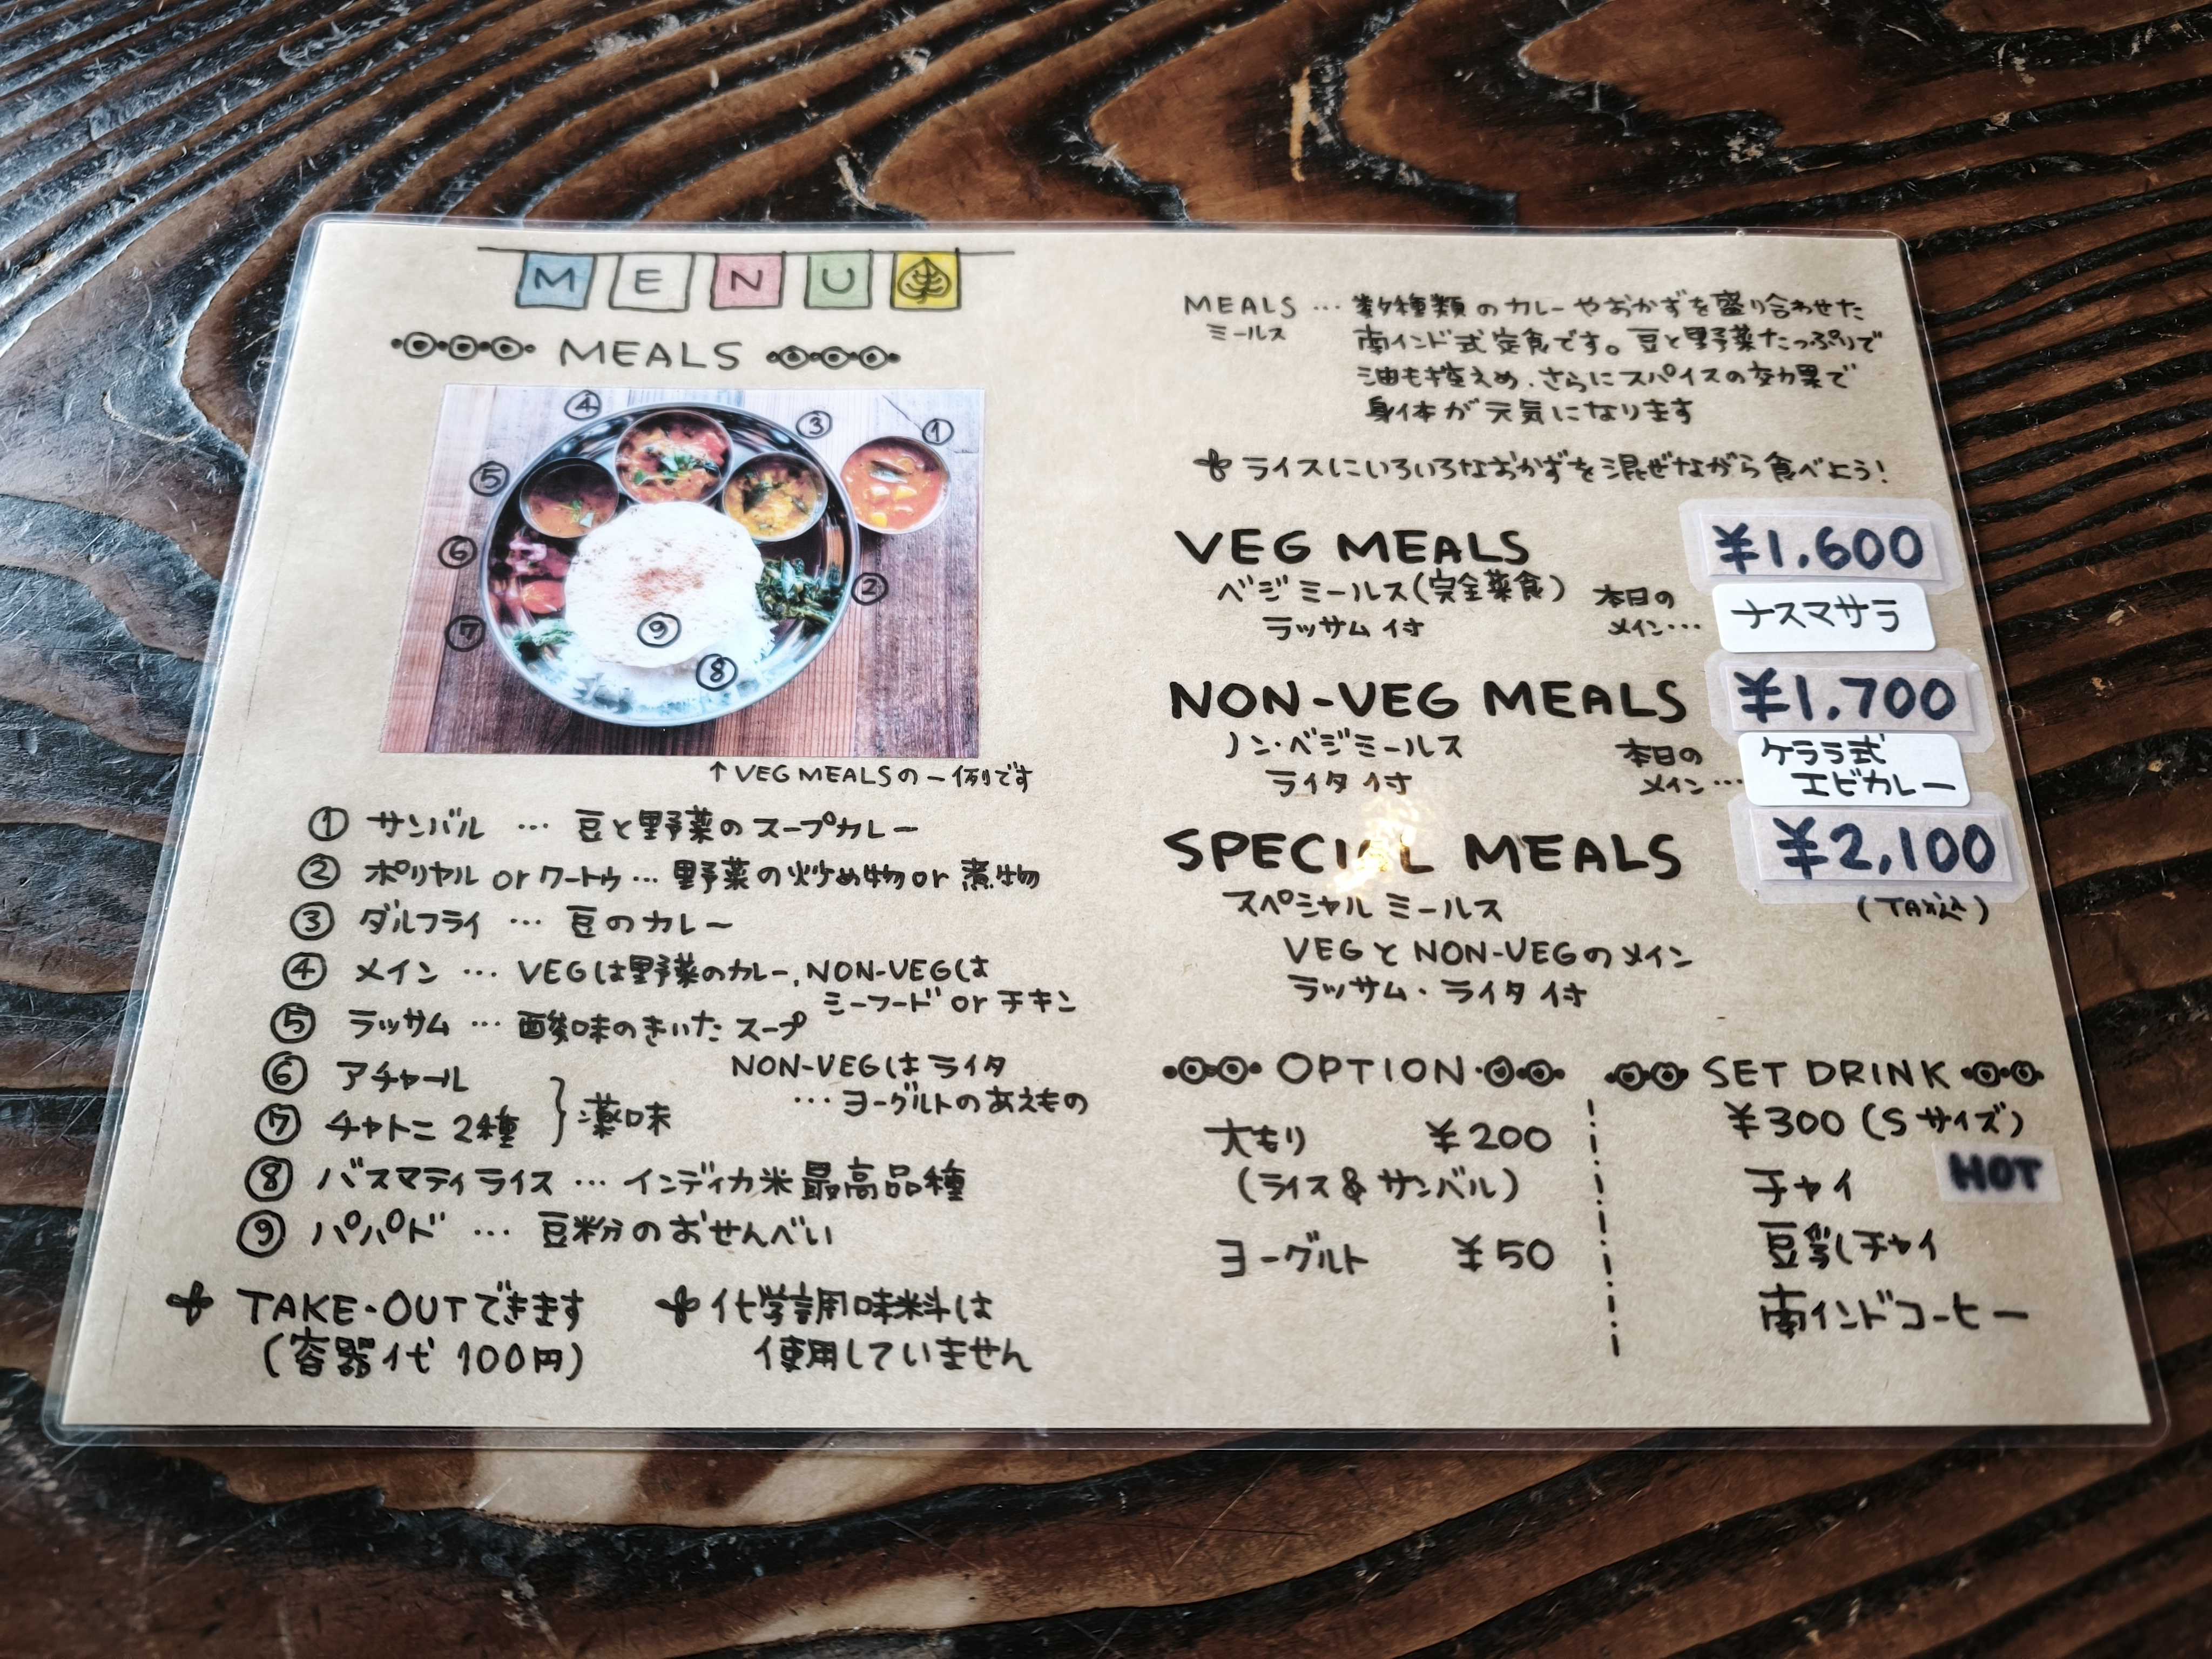 MENU
MEALS
④
③
①
⑤
⑥
②
⑦
⑨
⑧
↑VEG MEALSの一例です
① サンバル … 豆と野菜のスープカレー
② ポリヤル or クートゥ … 野菜の炒め物 or 煮物
③ ダルフライ … 豆のカレー
④ メイン … VEGは野菜のカレー、NON-VEGは
シーフード or チキン
⑤ ラッサム … 酸味のきいたスープ
NON-VEGは ライタ
… ヨーグルトのあえもの
⑥ アチャール
⑦ チャトニ 2種 } 薬味
⑧ バスマティライス … インディカ米最高品種
⑨ パパド … 豆粉のおせんべい
TAKE-OUTできます
(容器代 100円)
化学調味料は
使用していません
MEALS … 数種類のカレーやおかずを盛り合わせた
ミールス
南インド式定食です。豆と野菜たっぷりで
油も控えめ、さらにスパイスの効果で
身体が元気になります
ライスにいろいろなおかずを混ぜながら食べよう!
VEG MEALS ¥1,600
ベジミールス(完全菜食)
ラッサム付
本日の
メイン… ナスマサラ
NON-VEG MEALS ¥1,700
ノン・ベジミールス
ライタ付
本日の
メイン… ケララ式
エビカレー
SPECIAL MEALS ¥2,100
スペシャルミールス (TAX込)
VEGとNON-VEGのメイン
ラッサム・ライタ付
OPTION
大もり ¥200
(ライス&サンバル)
ヨーグルト ¥50
SET DRINK
¥300 (Sサイズ)
チャイ HOT
豆乳チャイ
南インドコーヒー